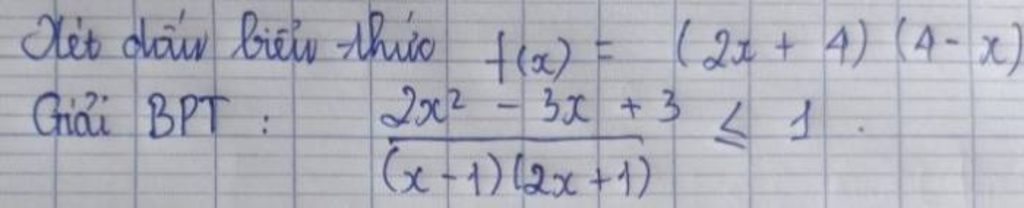 Xét dấu biểu thức f(x) = (2x + 4)(4 - x)
Giải BPT : \frac{2x² - 3x + 3}{(x - 1)(2x + 1)} ≤ 1.